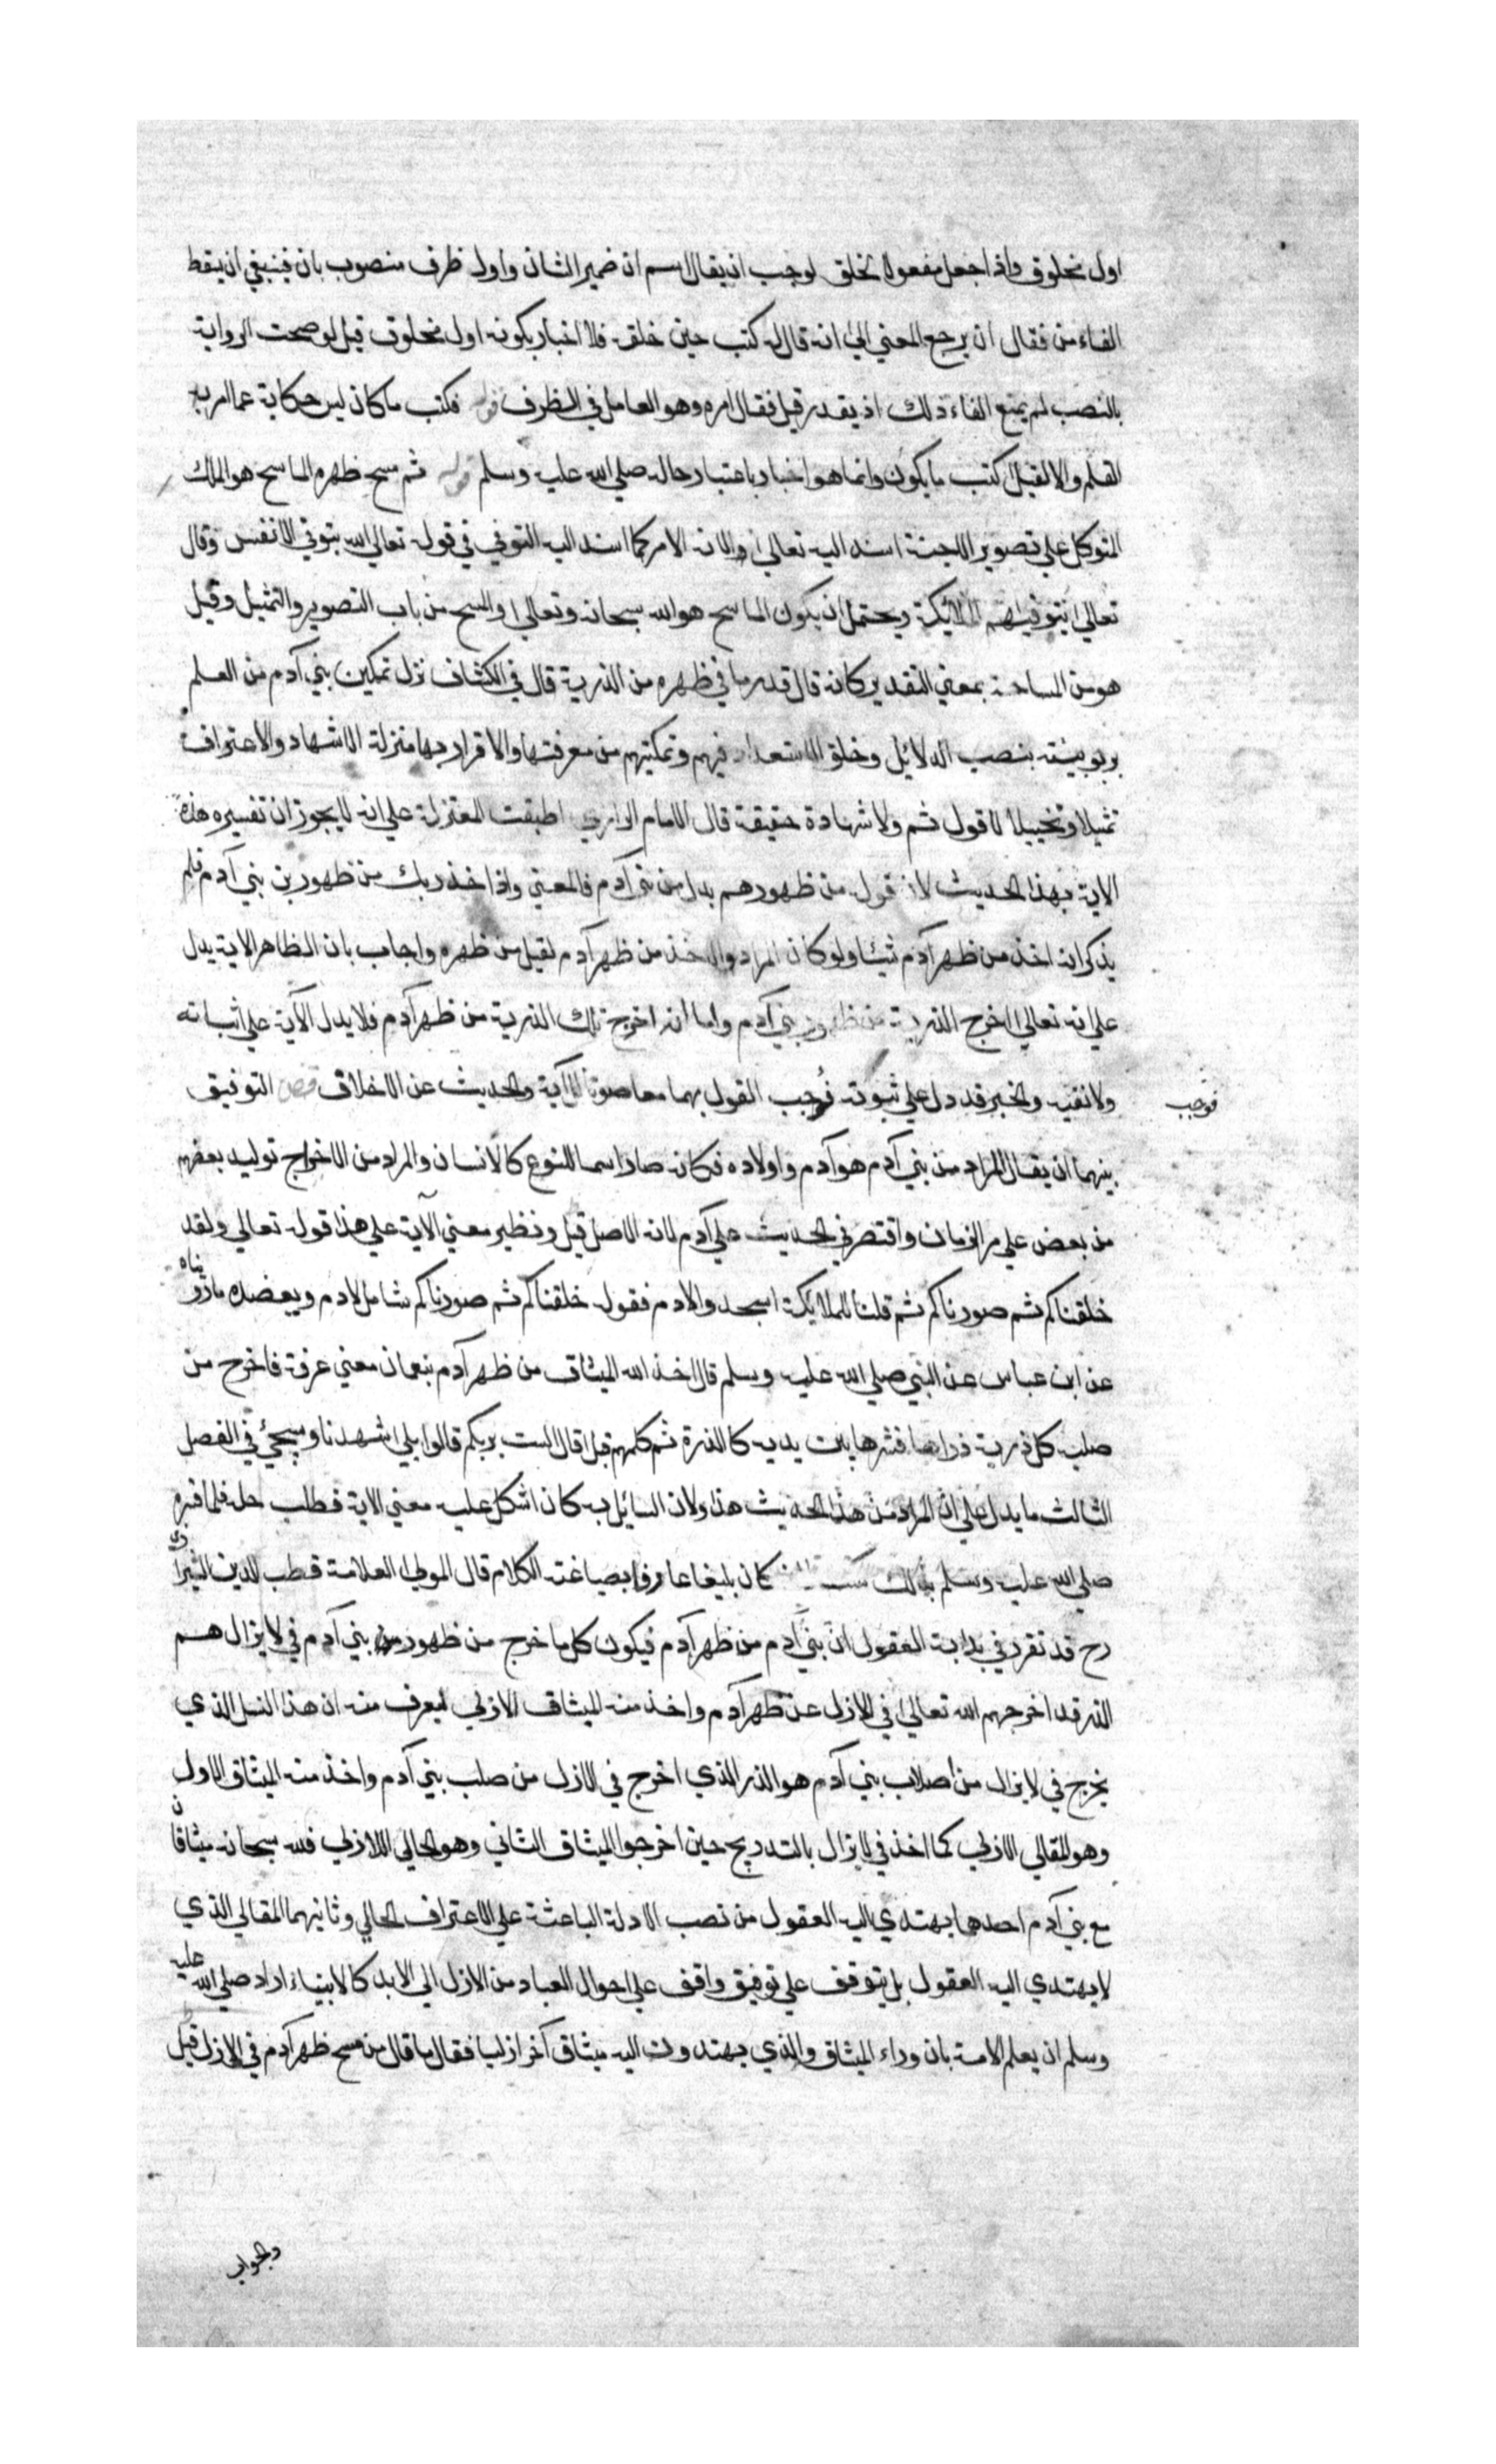 اول مخلوق واذا جعل مفعولا لخلق لوجب ان يقال اسم ان ضمير الشان واول ظرف منصوب بان فينبغي ان يقط
الفاء من فقال ان يرجع المعني الي انه قال له كتب حين خلقه فلا اخبار بكونه اول مخلوق قيل لو صحت الرواية
بالنصب لم يمنع الفاء ذلك اذ يقدر قبل فقال امره وهو العامل في الظرف قوله فكتب ما كان ليس حكاية عما امر به
القلم والا لقيل اكتب ما يكون وانما هو اخبار باعتبار حاله صلي الله عليه وسلم قوله ثم مسح ظهره الماسح هو الملك
المتوكل علي تصوير الاجنة اسند اليه تعالي لانه الامر كما اسند اليه التوفي في قوله تعالي الله يتوفي الانفس وقال
تعالي تتوفيهم الملائكة ويحتمل ان يكون الماسح هو الله سبحانه وتعالي والمسح من باب التصوير والتمثيل وقيل
هو من المساحة بمعني التقدير كانه قال قدر ما في ظهره من الذرية قال في الكشاف نزل تمكين بني آدم من العلم
بربوبيته بنصب الدلائل وخلق الاستعداد فيهم وتمكينهم من معرفتها والاقرار بها منزلة الاشهاد والاعتراف
تمثيلا وتخييلا لا قول ثم ولا شهادة حقيقة قال الامام الرازي اطبقت المعتزلة علي انه لا يجوز ان تفسيره هذه
الاية بهذا الحديث لان قوله من ظهورهم بدل من بني آدم فالمعني واذ اخذ ربك من ظهور بن بني آدم فلم
يذكر انه اخذ من ظهر آدم شيئا ولو كان المراد والاخذ من ظهر آدم لقيل من ظهره واجاب بان الظاهر الاية يدل
علي انه تعالي اخرج الذرية من ظهور بني آدم واما انه اخرج تلك الذرية من ظهر آدم فلا يدل الآية علي اثباته
ولا نفيه والخبر قد دل علي ثبوته فوجب القول بهما معا صونا للآية والحديث عن الاختلاف التوفيق
فوجب
بينهما ان يقال المراد من بني آدم هو آدم واولاده فكانه صار اسما للنوع كالانسان والمراد من الاخراج توليد بعضهم
من بعض علي مر الزمان واقتصر في الحديث علي آدم لانه الاصل قيل ونظير معني الآية علي هذا قوله تعالي ولقد
خلقناكم ثم صورناكم ثم قلنا للملائكة اسجدوا لادم فقوله خلقناكم ثم صورناكم شامل لادم ويعضده ما رويناه
عن ابن عباس عن النبي صلي الله عليه وسلم قال اخذ الله الميثاق من ظهر آدم بنعمان معني عرفة فاخرج من
صلبه كل ذرية ذراها فنثرها بين يديه كالذرة ثم كلمهم قبلا قال الست بربكم قالوا بلي شهدنا وسيجئ في الفصل
الثالث ما يدل علي ان المراد من هذا الحديث هذا ولان السائل به كان اشكل عليه معني الاية فطلب حله فلما فسره
صلي الله عليه وسلم بذلك سكت كان بليغا عارفا بصياغته الكلام قال المولي العلامة قطب الدين الشيرازي
رح قد تقرر في بداية العقول ان بني آدم من ظهر آدم فيكون كل ما خرج من ظهور بني آدم في لا يزال هم
الذر قد اخرجهم الله تعالي في الازل عن ظهر آدم واخذ منه الميثاق الازلي ليعرف منه ان هذا النسل الذي
يخرج في لا يزال من اصلاب بني آدم هو الذر الذي اخرج في الازل من صلب بني آدم واخذ منه الميثاق الاول
وهو المقالي الازلي كما اخذ في لا يزال بالتدريج حين اخرجوا الميثاق الثاني وهو الحالي اللازلي فلله سبحانه ميثاقان
مع بني آدم احدهما يهتدي اليه العقول من نصب الادلة الباعثة علي الاعتراف الحالي وثانيهما المقالي الذي
لا يهتدي اليه العقول بل يتوقف علي توفيق واقف علي احوال العباد من الازل الي الابد كالانبياء اراد صلي الله عليه
وسلم ان يعلم الامة بان وراء الميثاق والذي يهتدون اليه ميثاق آخر ازليا فقال ما قال من مسح ظهر آدم في الازل قيل
والجواب